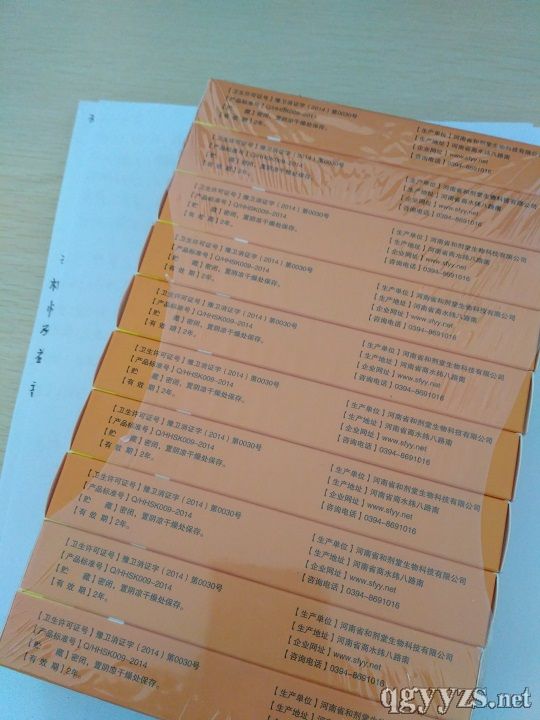 【卫生许可证号】豫卫消证字（2014）第0030号
【产品标准号】Q/HHSK009-2014
【贮 藏】密闭，置阴凉干燥处保存。
【有 效 期】2年。
【生产单位】河南省和剂堂生物科技有限公司
【生产地址】河南省商水纬八路南
【企业网址】www.sfyy.net
【咨询电话】0394-8691016
【卫生许可证号】豫卫消证字（2014）第0030号
【产品标准号】Q/HHSK009-2014
【贮 藏】密闭，置阴凉干燥处保存。
【有 效 期】2年。
【生产单位】河南省和剂堂生物科技有限公司
【生产地址】河南省商水纬八路南
【企业网址】www.sfyy.net
【咨询电话】0394-8691016
【卫生许可证号】豫卫消证字（2014）第0030号
【产品标准号】Q/HHSK009-2014
【贮 藏】密闭，置阴凉干燥处保存。
【有 效 期】2年。
【生产单位】河南省和剂堂生物科技有限公司
【生产地址】河南省商水纬八路南
【企业网址】www.sfyy.net
【咨询电话】0394-8691016
【卫生许可证号】豫卫消证字（2014）第0030号
【产品标准号】Q/HHSK009-2014
【贮 藏】密闭，置阴凉干燥处保存。
【有 效 期】2年。
【生产单位】河南省和剂堂生物科技有限公司
【生产地址】河南省商水纬八路南
【企业网址】www.sfyy.net
【咨询电话】0394-8691016
【卫生许可证号】豫卫消证字（2014）第0030号
【产品标准号】Q/HHSK009-2014
【贮 藏】密闭，置阴凉干燥处保存。
【有 效 期】2年。
【生产单位】河南省和剂堂生物科技有限公司
【生产地址】河南省商水纬八路南
【企业网址】www.sfyy.net
【咨询电话】0394-8691016
【卫生许可证号】豫卫消证字（2014）第0030号
【产品标准号】Q/HHSK009-2014
【贮 藏】密闭，置阴凉干燥处保存。
【有 效 期】2年。
【生产单位】河南省和剂堂生物科技有限公司
【生产地址】河南省商水纬八路南
【企业网址】www.sfyy.net
【咨询电话】0394-8691016
【卫生许可证号】豫卫消证字（2014）第0030号
【产品标准号】Q/HHSK009-2014
【贮 藏】密闭，置阴凉干燥处保存。
【有 效 期】2年。
【生产单位】河南省和剂堂生物科技有限公司
【生产地址】河南省商水纬八路南
【企业网址】www.sfyy.net
【咨询电话】0394-8691016
【卫生许可证号】豫卫消证字（2014）第0030号
【产品标准号】Q/HHSK009-2014
【贮 藏】密闭，置阴凉干燥处保存。
【有 效 期】2年。
【生产单位】河南省和剂堂生物科技有限公司
【生产地址】河南省商水纬八路南
【企业网址】www.sfyy.net
【咨询电话】0394-8691016
【卫生许可证号】豫卫消证字（2014）第0030号
【产品标准号】Q/HHSK009-2014
【贮 藏】密闭，置阴凉干燥处保存。
【有 效 期】2年。
【生产单位】河南省和剂堂生物科技有限公司
【生产地址】河南省商水纬八路南
【企业网址】www.sfyy.net
【咨询电话】0394-8691016
【卫生许可证号】豫卫消证字（2014）第0030号
【产品标准号】Q/HHSK009-2014
【贮 藏】密闭，置阴凉干燥处保存。
【有 效 期】2年。
【生产单位】河南省和剂堂生物科技有限公司
【生产地址】河南省商水纬八路南
【企业网址】www.sfyy.net
【咨询电话】0394-8691016
qgyyzs.net